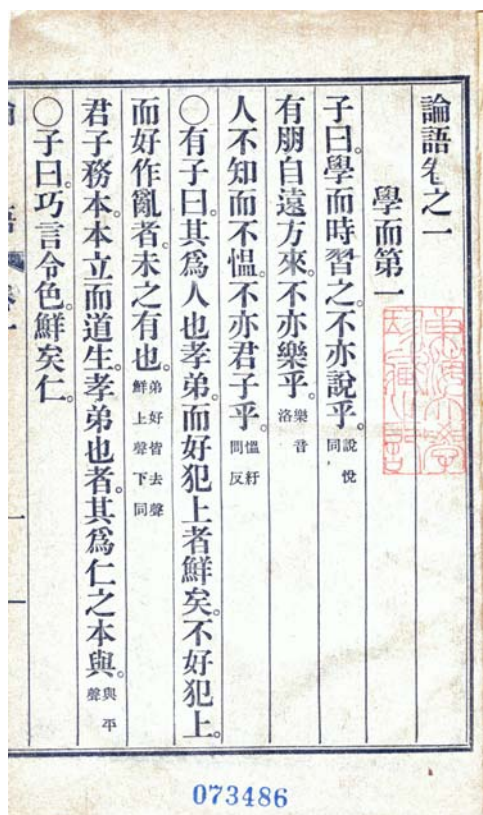 論語卷之一
學而第一
子曰。學而時習之。不亦說乎。說悅同
有朋自遠方來。不亦樂乎。樂音洛
人不知而不慍。不亦君子乎。慍紆問反
〇有子曰。其爲人也孝弟。而好犯上者鮮矣。不好犯上。
而好作亂者。未之有也。弟好皆去聲鮮上聲下同
君子務本。本立而道生。孝弟也者。其爲仁之本與。與平聲
〇子曰。巧言令色。鮮矣仁。
一
073486